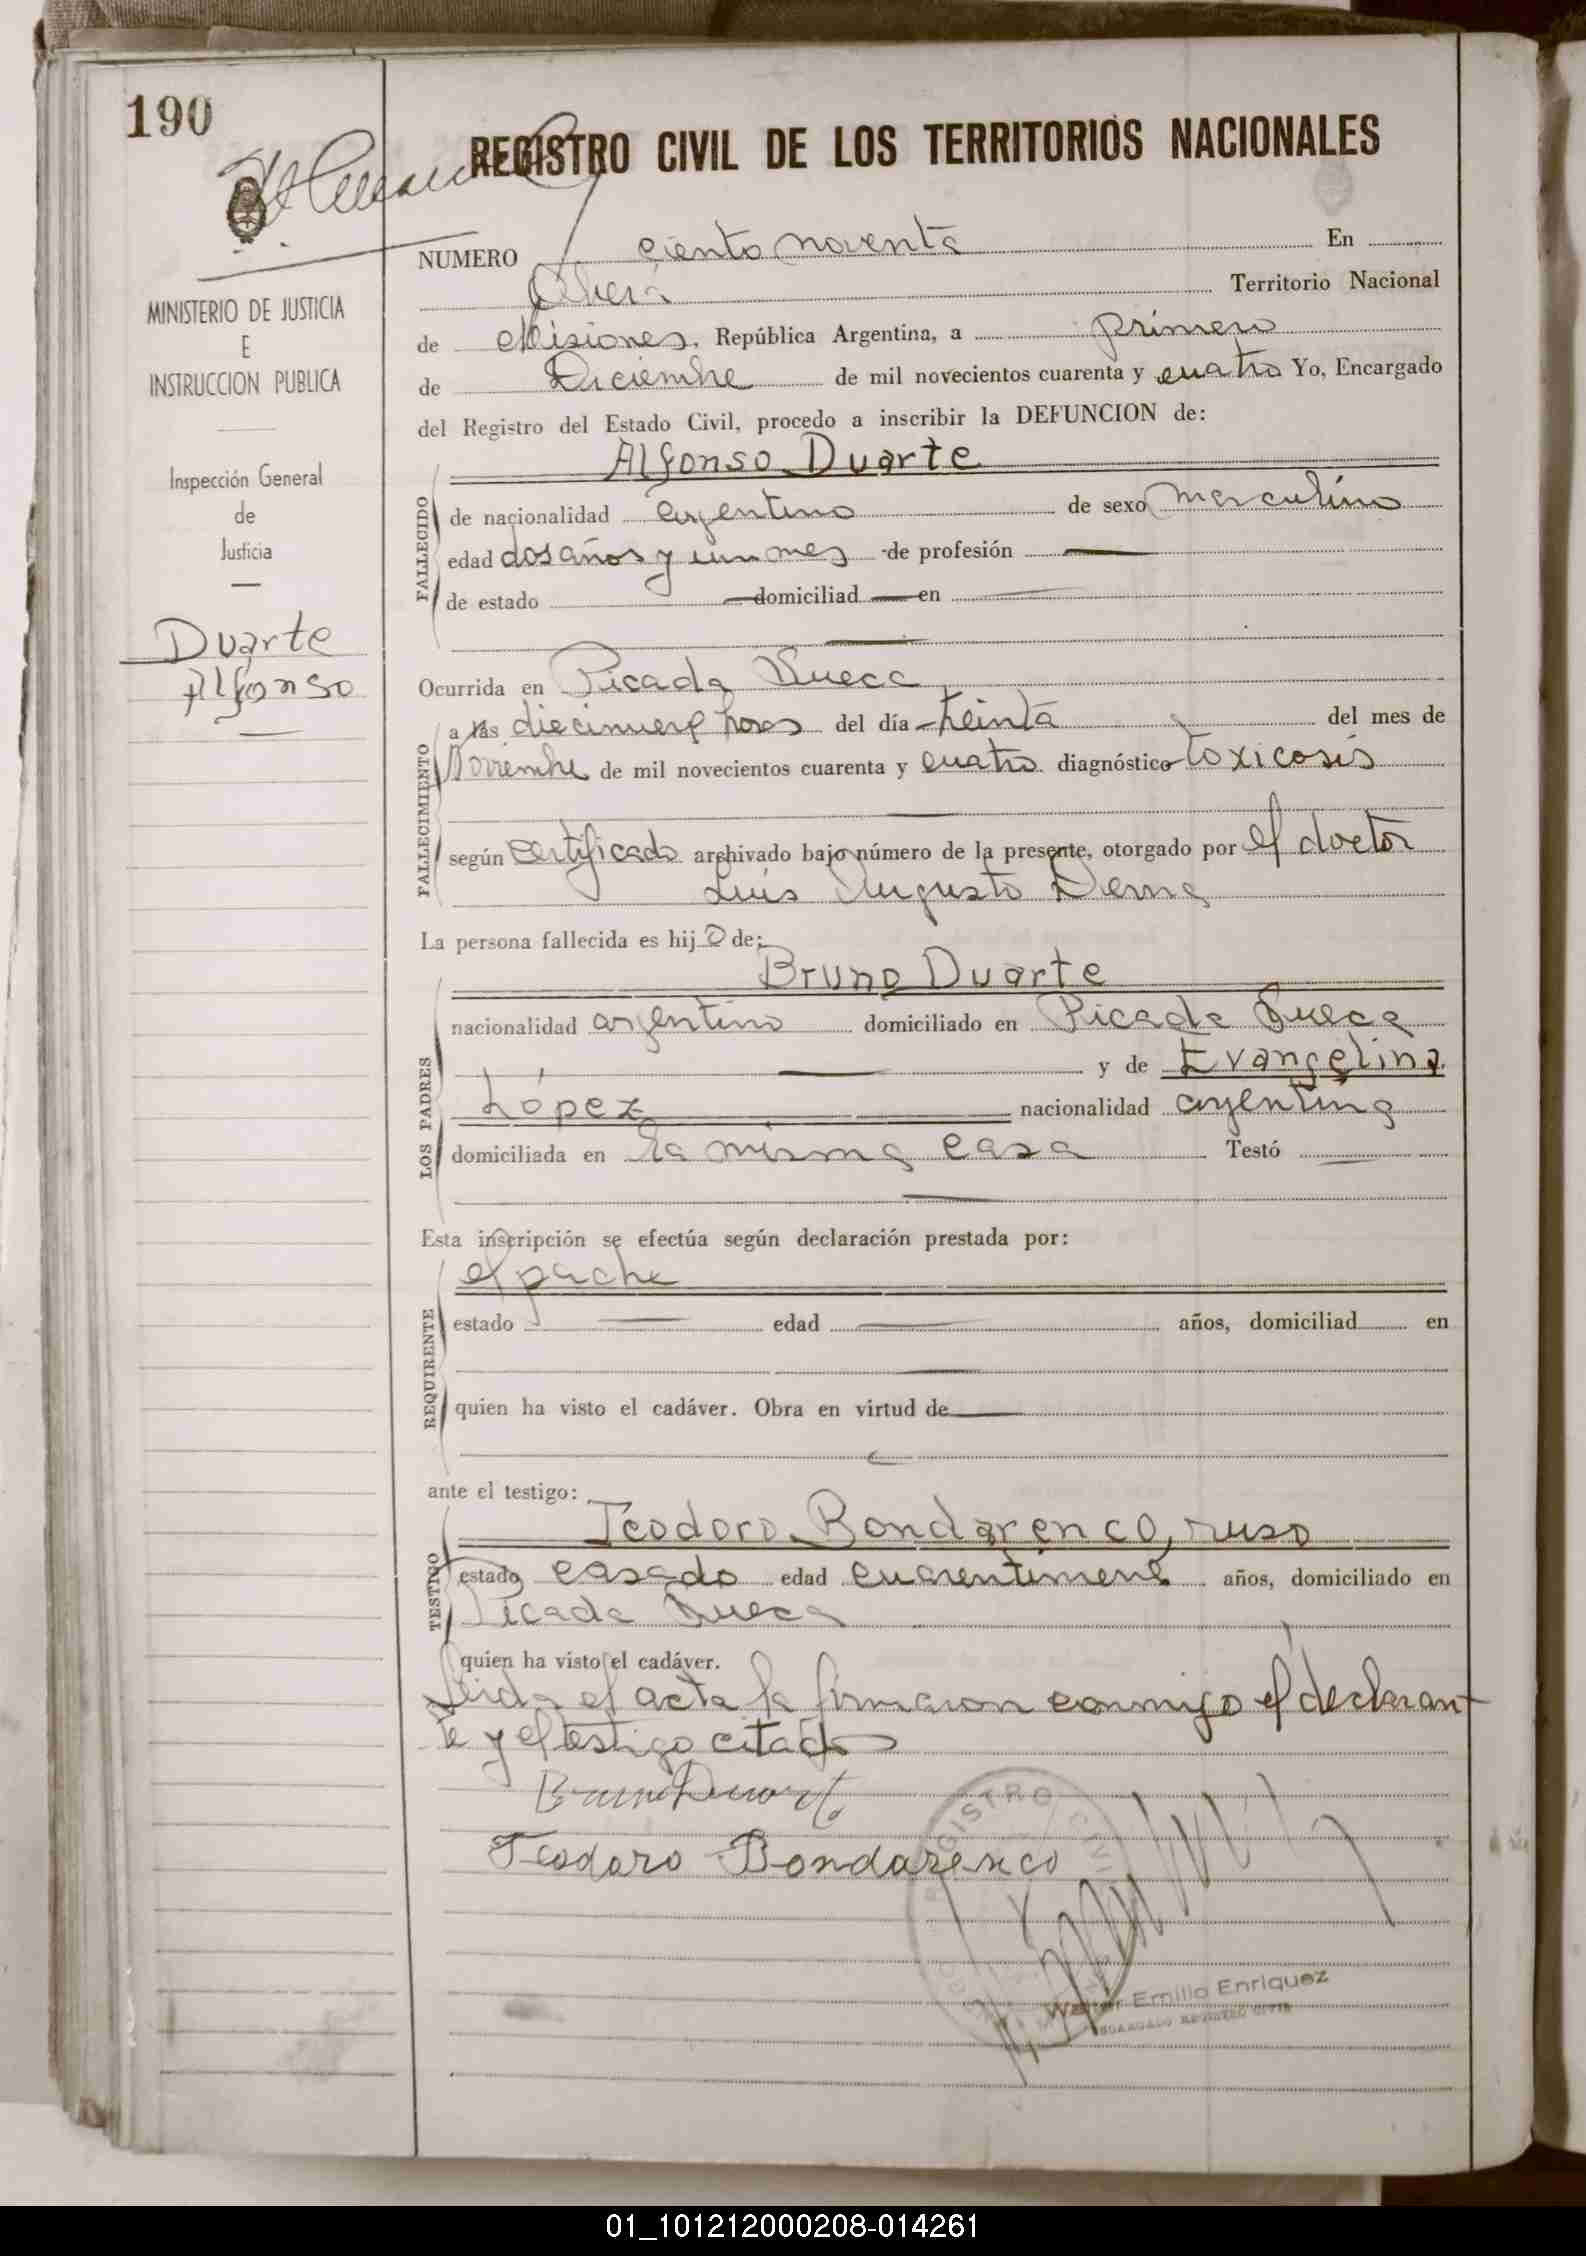 190
REGISTRO CIVIL DE LOS TERRITORIOS NACIONALES
NUMERO ciento noventa En
Oberá Territorio Nacional
de Misiones, República Argentina, a primero
de Diciembre de mil novecientos cuarenta y cuatro Yo, Encargado
del Registro del Estado Civil, procedo a inscribir la DEFUNCION de:
MINISTERIO DE JUSTICIA
E
INSTRUCCION PUBLICA
Inspección General
de
Justicia
Duarte
Alfonso
FALLECIDO
Alfonso Duarte
de nacionalidad argentino de sexo masculino
edad dos años y un mes de profesión
de estado domiciliad en
Ocurrida en Picada Sueca
FALLECIMIENTO
a las diecinueve horas del día treinta del mes de
Noviembre de mil novecientos cuarenta y cuatro diagnóstico toxicosis
según certificado archivado bajo número de la presente, otorgado por el doctor
Luis Augusto Derna
La persona fallecida es hijo de:
LOS PADRES
Bruno Duarte
nacionalidad argentino domiciliado en Picada Sueca
y de Evangelina
López nacionalidad argentina
domiciliada en la misma casa Testó
Esta inscripción se efectúa según declaración prestada por:
REQUIRENTE
el padre
estado edad años, domiciliad en
quien ha visto el cadáver. Obra en virtud de
ante el testigo:
TESTIGO
Teodoro Bondarenco, ruso
estado casado edad años, domiciliado en
Picada Sueca
quien ha visto el cadáver.
Leida el acta la firmaron conmigo el declaran
te y el testigo citado
Bruno Duarte
Teodoro Bondarenco
REGISTRO CIVIL
Walter Emilio Enriquez
ENCARGADO REGISTRO CIVIL
01_101212000208-014261